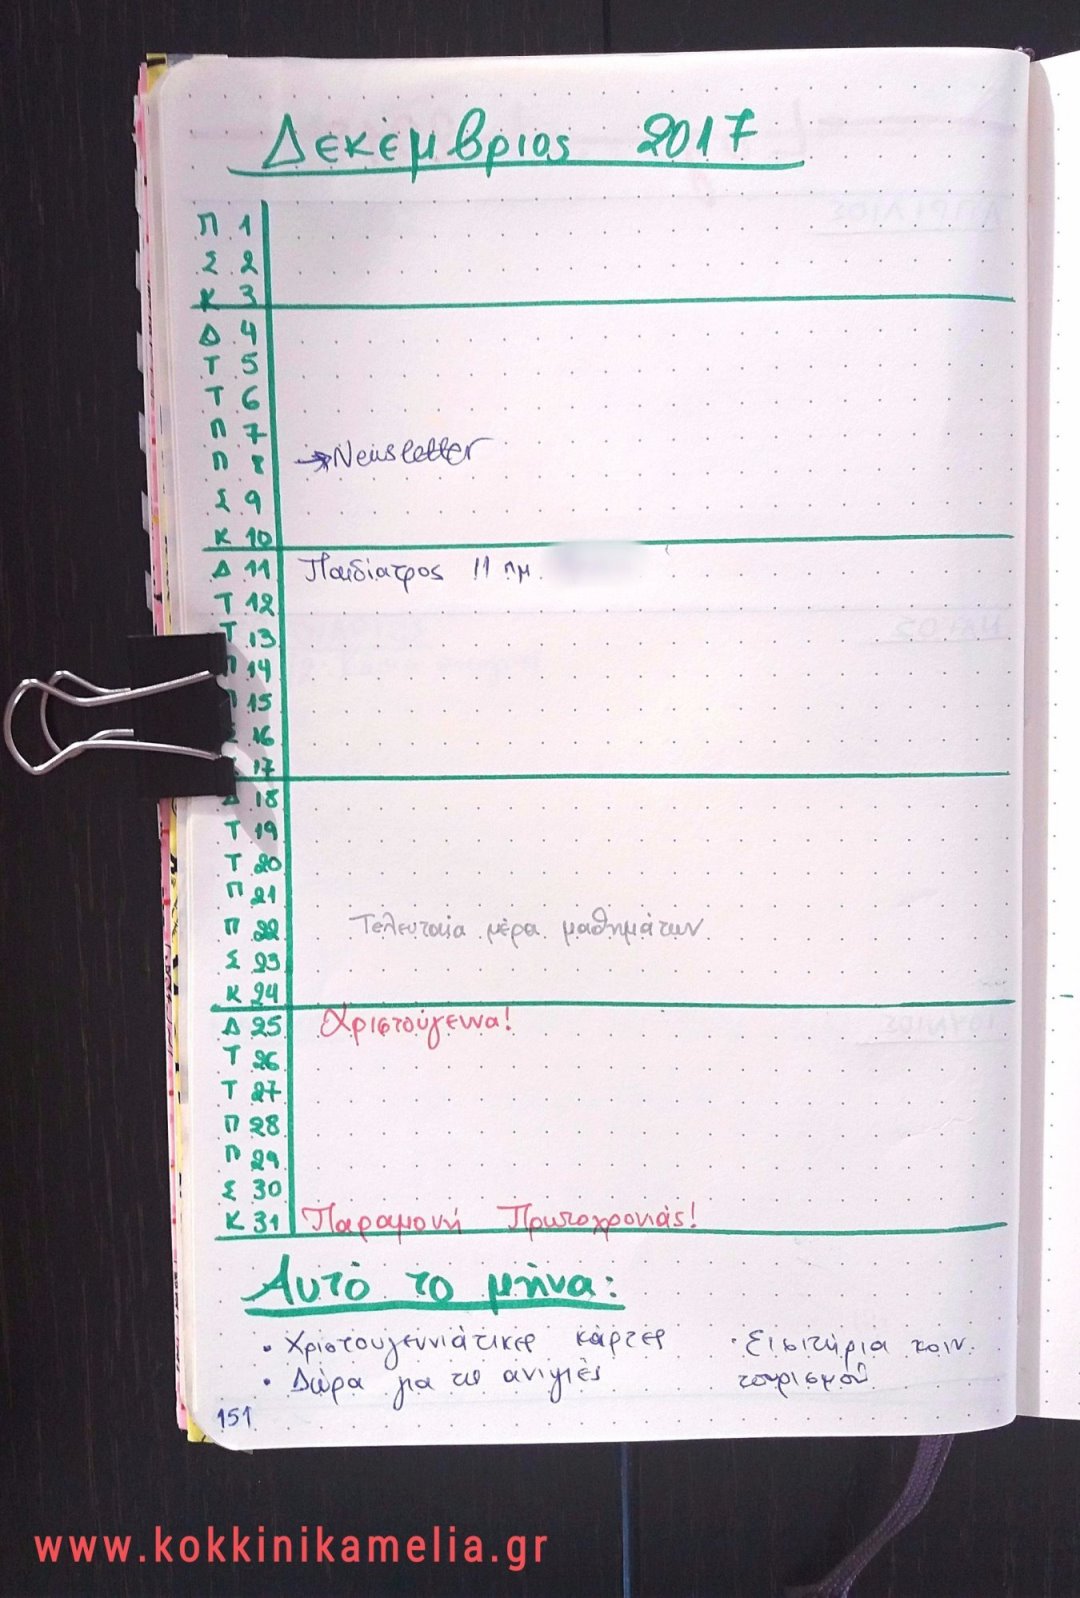 Δεκέμβριος 2017
Π 1
Σ 2
Κ 3
Δ 4
Τ 5
Τ 6
Π 7
Π 8 → Newsletter
Σ 9
Κ 10
Δ 11 Παιδίατρος 11 πμ.
Τ 12
Τ 13
Π 14
Π 15
16
17
Δ 18
Τ 19
Τ 20
Π 21
Π 22 Τελευταία μέρα μαθημάτων
Σ 23
Κ 24
Δ 25 Χριστούγεννα!
Τ 26
Τ 27
Π 28
Π 29
Σ 30
Κ 31 Παραμονή Πρωτοχρονιάς!
Αυτό το μήνα:
• Χριστουγεννιάτικες κάρτες
• Δώρα για τα ανιψιές
• Εισιτήρια κοιν.
τουρισμού
151
www.kokkinikamelia.gr